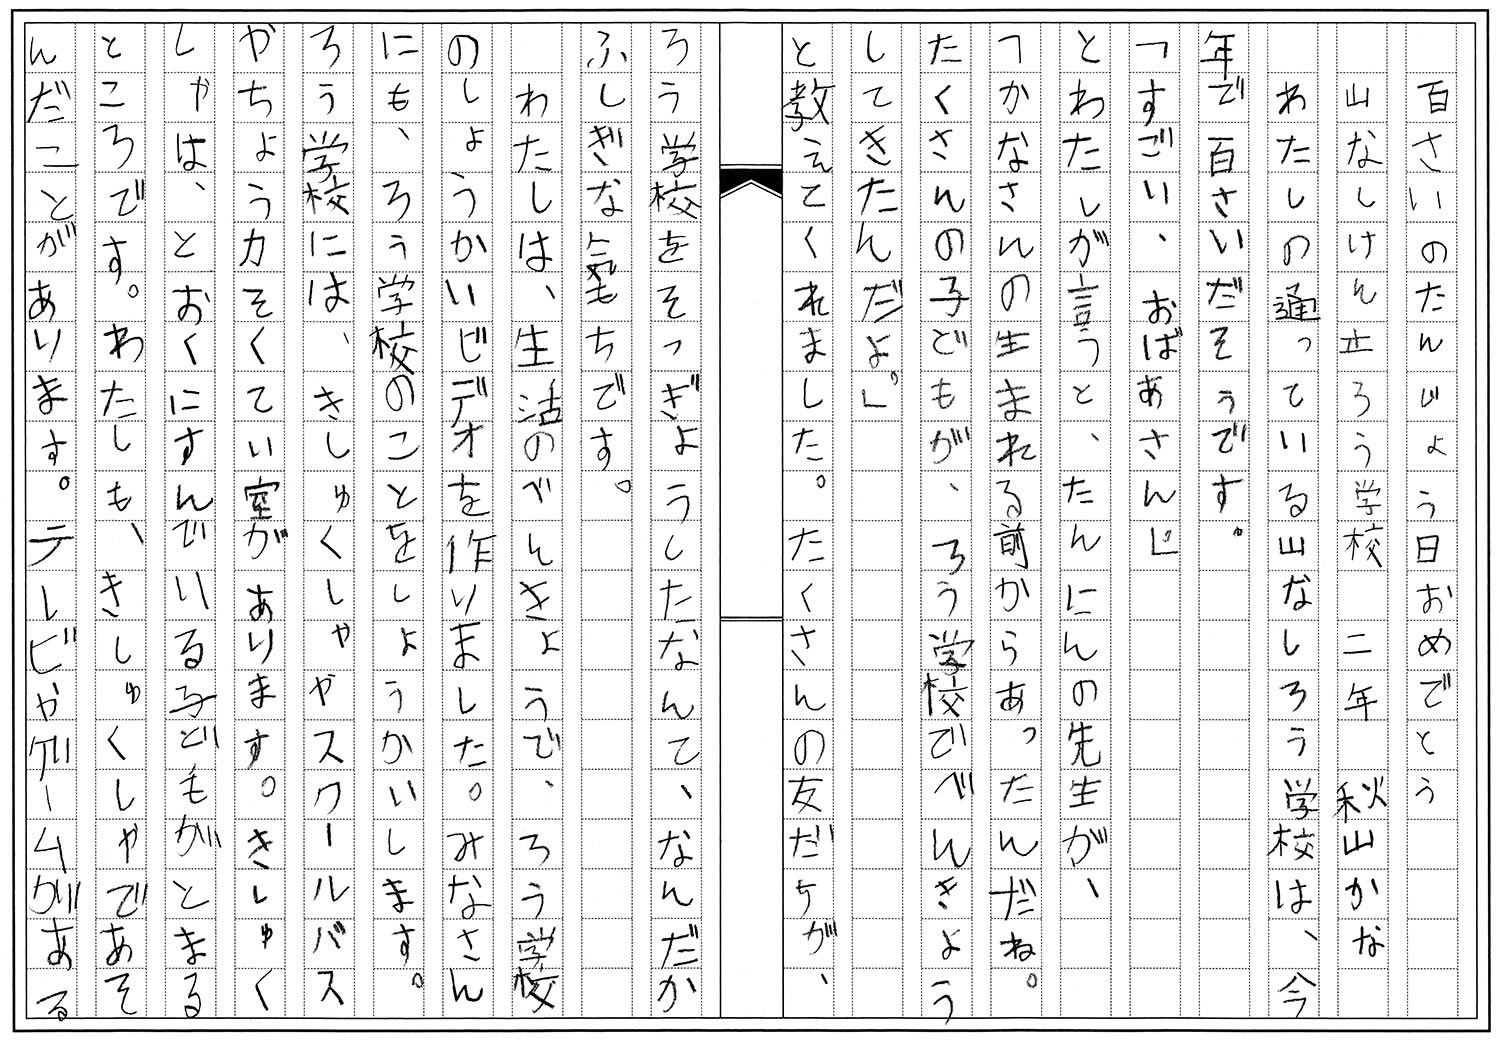 百さいのたんじょう日おめでとう
山なしけん立ろう学校　二年　秋山かな
わたしの通っている山なしろう学校は、今
年で百さいだそうです。
「すごい、おばあさんじ
とわたしが言うと、たんにんの先生が、
「かなさんの生まれる前からあったんだね。
たくさんの子どもが、ろう学校でべんきょう
してきたんだよ。」
と教えてくれました。たくさんの友だちが、
ろう学校をそつぎょうしたなんて、なんだか
ふしぎな気もちです。
わたしは、生活のべんきょうで、ろう学校
のしょうかいビデオを作りました。みなさん
にも、ろう学校のことをしょうかいします。
ろう学校には、きしゅくしゃやスクールバス
やちょうカそくてい室があります。きしゅく
しゃは、とおくにすんでいる子どもがとまる
ところです。わたしも、きしゅくしゃであそ
んだことがあります。テレビやゲームがある